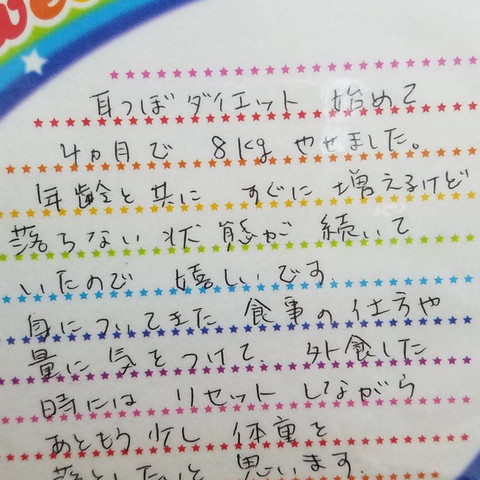 耳つぼダイエット 始めて
4ヵ月で 8kg やせました。
年齢と共に すぐに 増えるけど
落ちない状態が 続いて
いたので 嬉しいです
身についてきた 食事の仕方や
量に気をつけて、外食した
時には リセット しながら
あともう少し 体重を
落としたいと 思います.